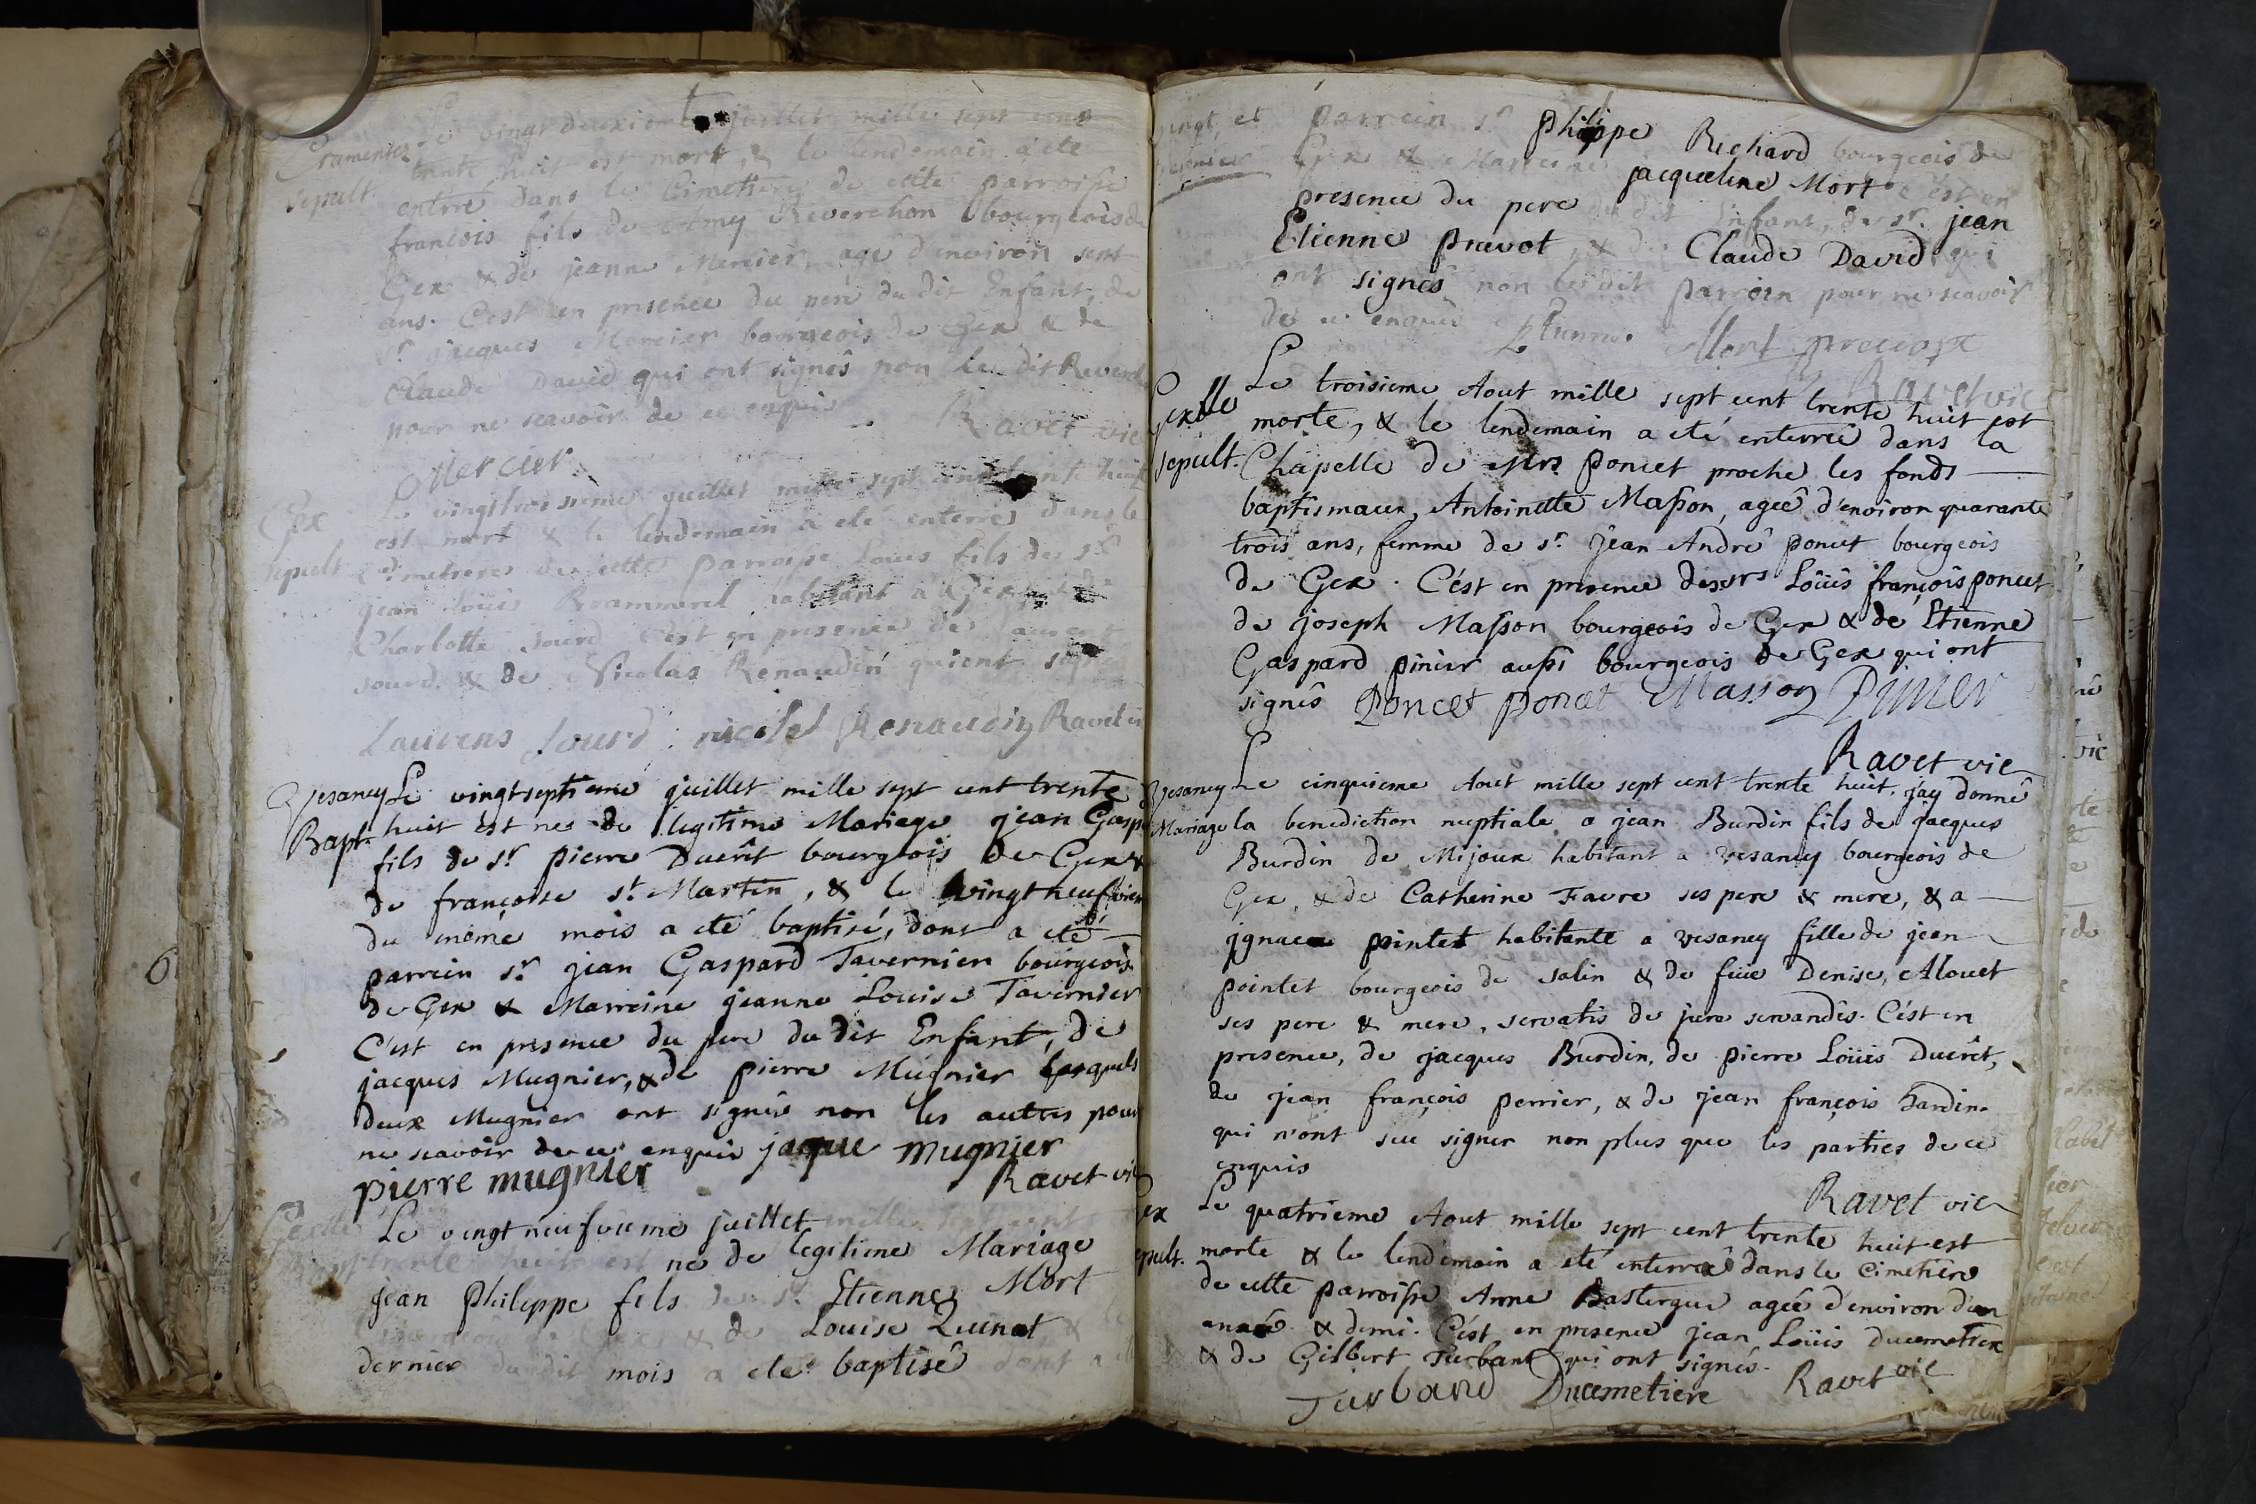 Le vingt deuxieme juillet mille sept cent
sepult. trente huit est mort, & le lendemain a eté
entré dans le Cimetiere de cette parroisse
francois fils de Amy Reverchon bourgeois de
Gex & de jeanne Mercier, age d'environ sept
ans. C'est en presence du pere du dit Enfant, de
sr. jacques Mercier bourgeois de Gex & de
Claude David qui ont signés non le dit Reverch
pour ne scavoir de ce enquis Ravet vic
Mercier
Gex Le vingttroisieme juillet mille sept cent trente huit
est mort & le lendemain a eté enterré dans le
sepult Cimetiere de cette parroisse Loüis fils de sr.
jean Loüis Brammerel habitant a Gex & de
Charlotte Sourd. C'est en presence de Laurent
sourd & de Nicolas Renaudin qui ont signé
Laurens Sourd nicolas Renaudin Ravet vi
Vesancy Le vingtseptieme juillet mille sept cent trente
Bapt. huit est né de legitime Mariage jean Gasp
fils de sr. pierre Ducrêt bourgeois de Gex &
de françoise st. Martin, & le vingtneufviem
du même mois a eté baptisé, dont a eté
parrein sr. jean Gaspard Tavernier bourgeois
de Gex & Marreine jeanne Louise Tavernier
C'est en presence du pere du dit Enfant, de
jacques Mugnier, & de pierre Mugnier lesquels
deux Mugnier ont signés non les autres pour
ne scavoir de ce enquis jaque mugnier
pierre mugnier Ravet vic
Le vingt neufvieme juillet mille sept cent
trente huit est né de legitime Mariage
jean Philippe fils de sr. Etienne Mort
& de Louise Quinat &
dernier du dit mois a eté baptisé dont a
parrein sr. philippe Richard bourgeois de
Gex & Marreine jacqueline Mort c'est en
presence du pere du dit Enfant, de sr. jean
Etienne prevot, & de Claude David qui
ont signés non le dit parrein pour ne scavoir
de ce enquis Etienne Mort prevost
Ravet vic
Gex Le troisieme Aout mille sept cent trente huit est
morte, & le lendemain a eté enterreé dans la
sepult. Chapelle de Mrs. poncet proche les fonds
baptismaux, Antoinette Masson, ageé d'environ quarante
trois ans, femme de sr. jean André poncet bourgeois
de Gex. C'ést en presence des srs Loüis françois poncet
de joseph Masson bourgeois de Gex & de Etienne
Gaspard pinier aussi bourgeois de Gex qui ont
signés Poncet poncet Masson Pinier
Ravet vic
Vesancy Le cinquieme Aout mille sept cent trente huit. jay donné
Mariage la benediction nuptiale a jean Burdin fils de jacques
Burdin de Mijoux habitant a vesancy bourgeois de
Gex, & de Catherine Favre ses pere & mere, & a
jgnace pointet habitante a vesancy fille de jean
pointet bourgeois de salin & de feüe Denise, Alouet
ses pere & mere, servatis de jure servandis. C'ést en
presence, de jacques Burdin, de pierre Loüis Ducrêt,
de jean françois perrier, & de jean françois hardin.
qui n'ont sçu signer non plus que les parties de ce
enquis
Ravet vic
Gex Le quatrieme Aout mille sept cent trente huit est
sepult. morte & le lendemain a eté enterreé dans le Cimetiere
de cette parroisse Anne Bastergue ageé d'environ d'un
anneé & demi. C'ést en presence jean Loüis ducemetiere
& de Gilbert Turband qui ont signés.
Turband Ducemetiere Ravet vic